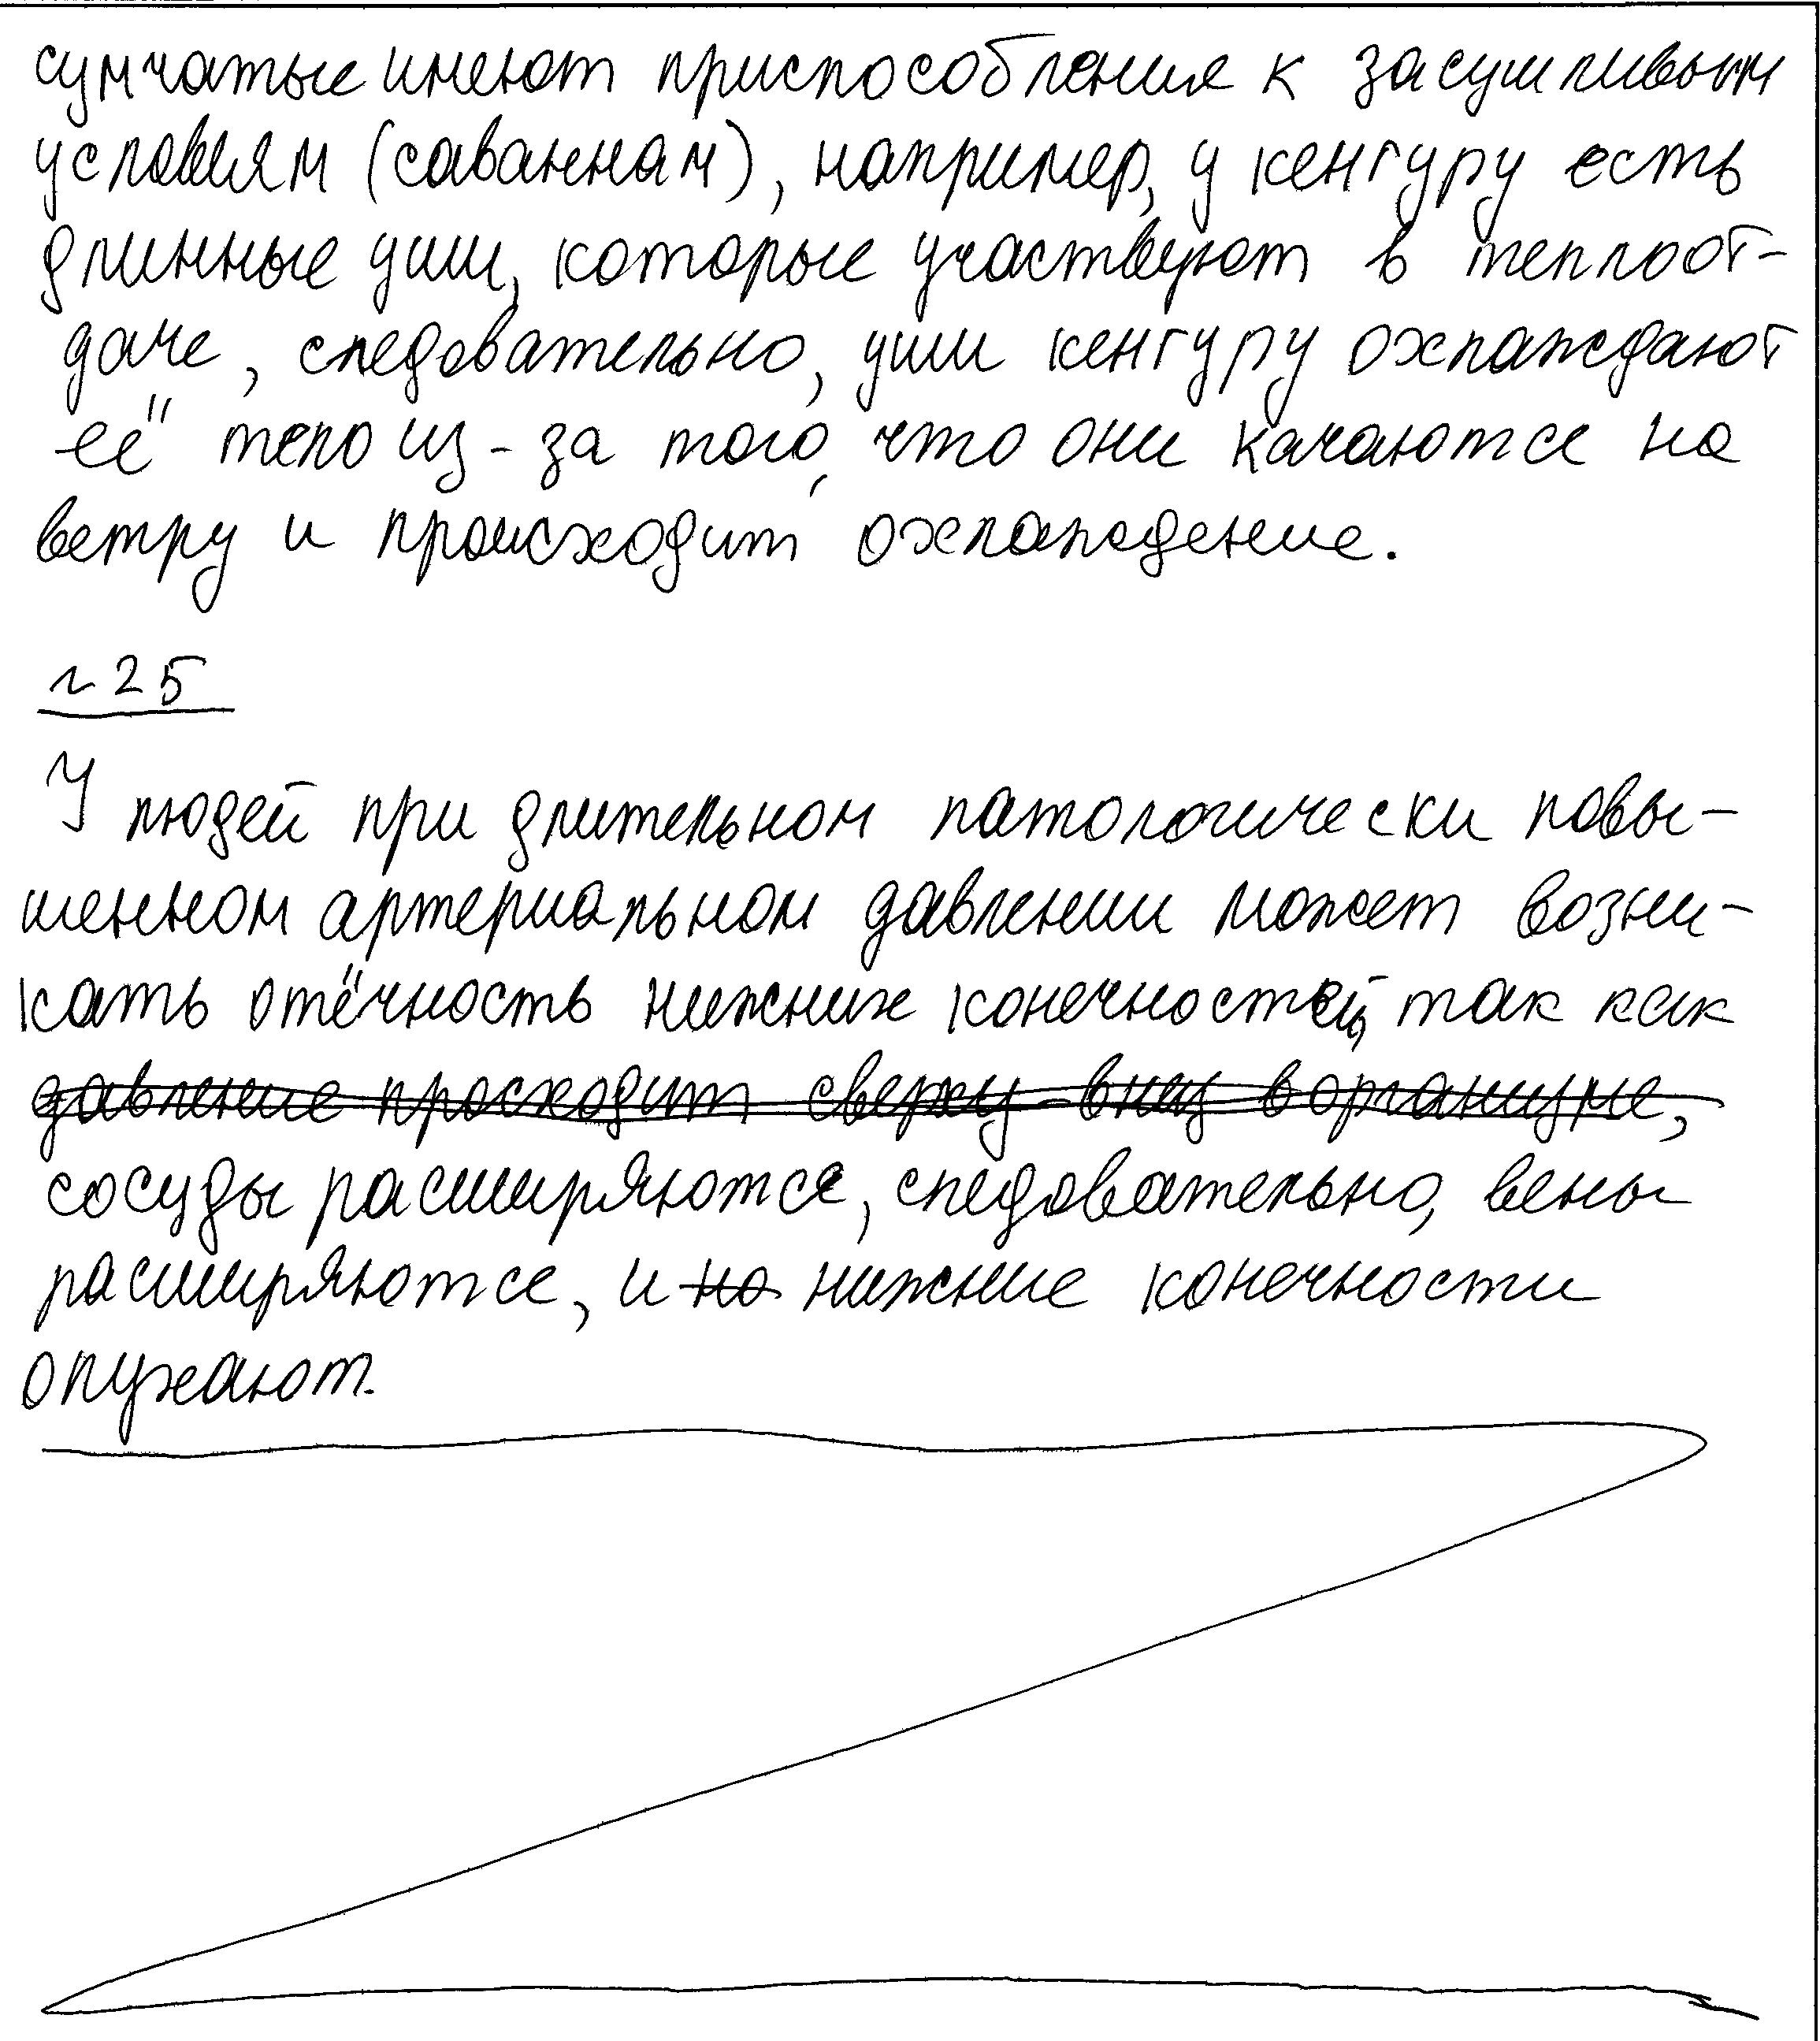 сумчатые имеют приспособления к засушливым
условиям (саваннам), например, у кенгуру есть
длинные уши, которые участвуют в теплоот-
даче, следовательно, уши кенгуру охлаждают
её тело из-за того, что они качаются на
ветру и происходит охлаждение.
№25
У людей при длительном патологически повы-
шенном артериальном давлении может возни-
кать отёчность нижних конечностей, так как
давление просходит сверху-вниз в организме,
сосуды расширяются, следовательно, вены
расширяются, и на нижние конечности
опухают.